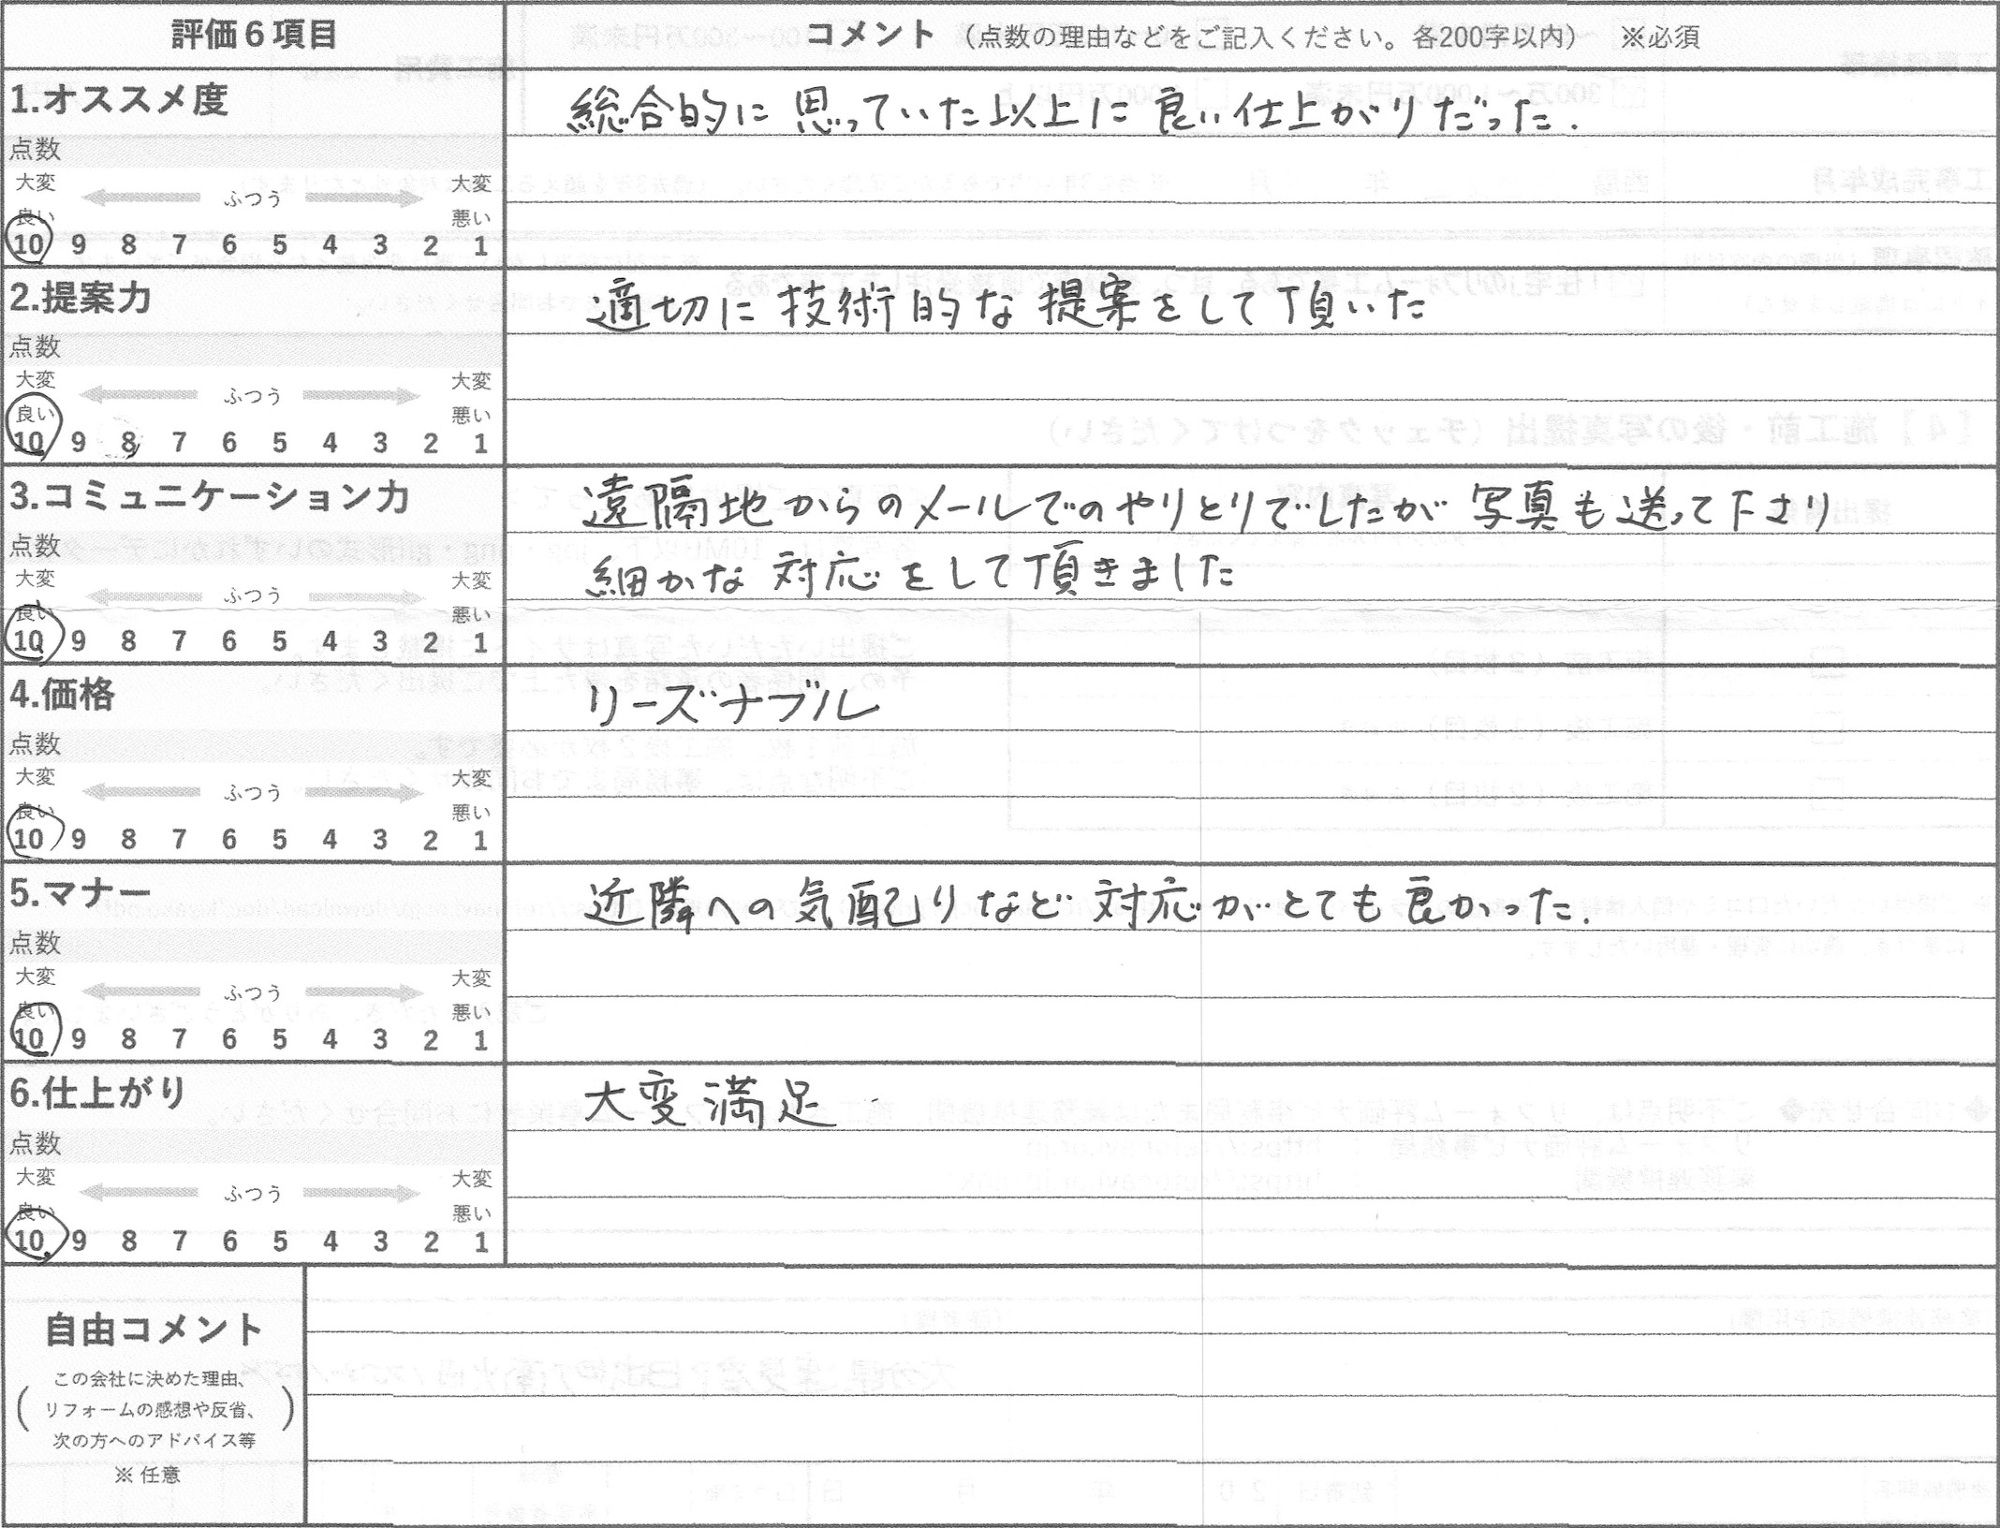 評価6項目
コメント （点数の理由などをご記入ください。各200字以内） ※必須
1.オススメ度
総合的に思っていた以上に良い仕上がりだった.
点数
大変 ふつう 大変
良い 悪い
10 9 8 7 6 5 4 3 2 1
2.提案力
適切に技術的な提案をして頂いた
点数
大変 ふつう 大変
良い 悪い
10 9 8 7 6 5 4 3 2 1
3.コミュニケーション力
遠隔地からのメールでのやりとりでしたが写真も送って下さり
細かな対応をして頂きました
点数
大変 ふつう 大変
良い 悪い
10 9 8 7 6 5 4 3 2 1
4.価格
リーズナブル
点数
大変 ふつう 大変
良い 悪い
10 9 8 7 6 5 4 3 2 1
5.マナー
近隣への気配りなど対応がとても良かった.
点数
大変 ふつう 大変
良い 悪い
10 9 8 7 6 5 4 3 2 1
6.仕上がり
大変満足
点数
大変 ふつう 大変
良い 悪い
10 9 8 7 6 5 4 3 2 1
自由コメント
（この会社に決めた理由、
リフォームの感想や反省、
次の方へのアドバイス等）
※ 任意